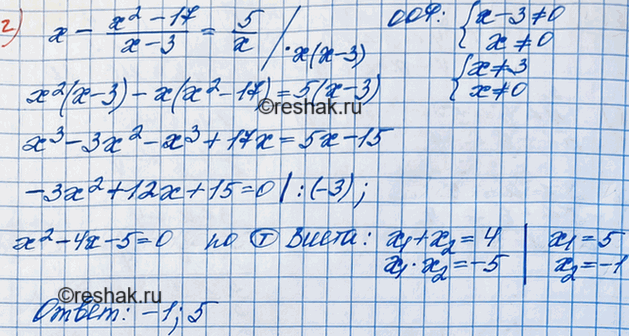 2) x - \frac{x² - 17}{x - 3} = \frac{5}{x} / · x(x-3)   ООФ: { x - 3 ≠ 0
x ≠ 0
{ x ≠ 3
x ≠ 0
x²(x-3) - x(x² - 17) = 5(x-3)
©reshak.ru
x³ - 3x² - x³ + 17x = 5x - 15
-3x² + 12x + 15 = 0 | : (-3);
x² - 4x - 5 = 0   по Ⓣ Виета: x₁ + x₂ = 4 | x₁ = 5
x₁ · x₂ = -5 | x₂ = -1
©reshak.ru
Ответ: -1; 5